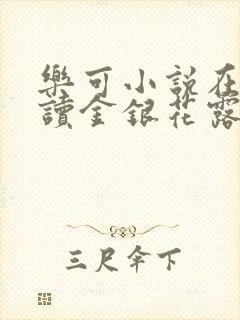 樂可小說在
讀金銀花露
三尺伞下